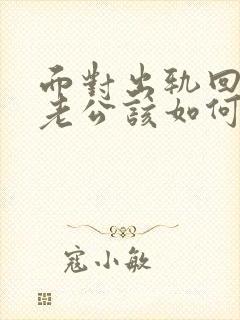 而對出軌回
老公該如何
寇小敏